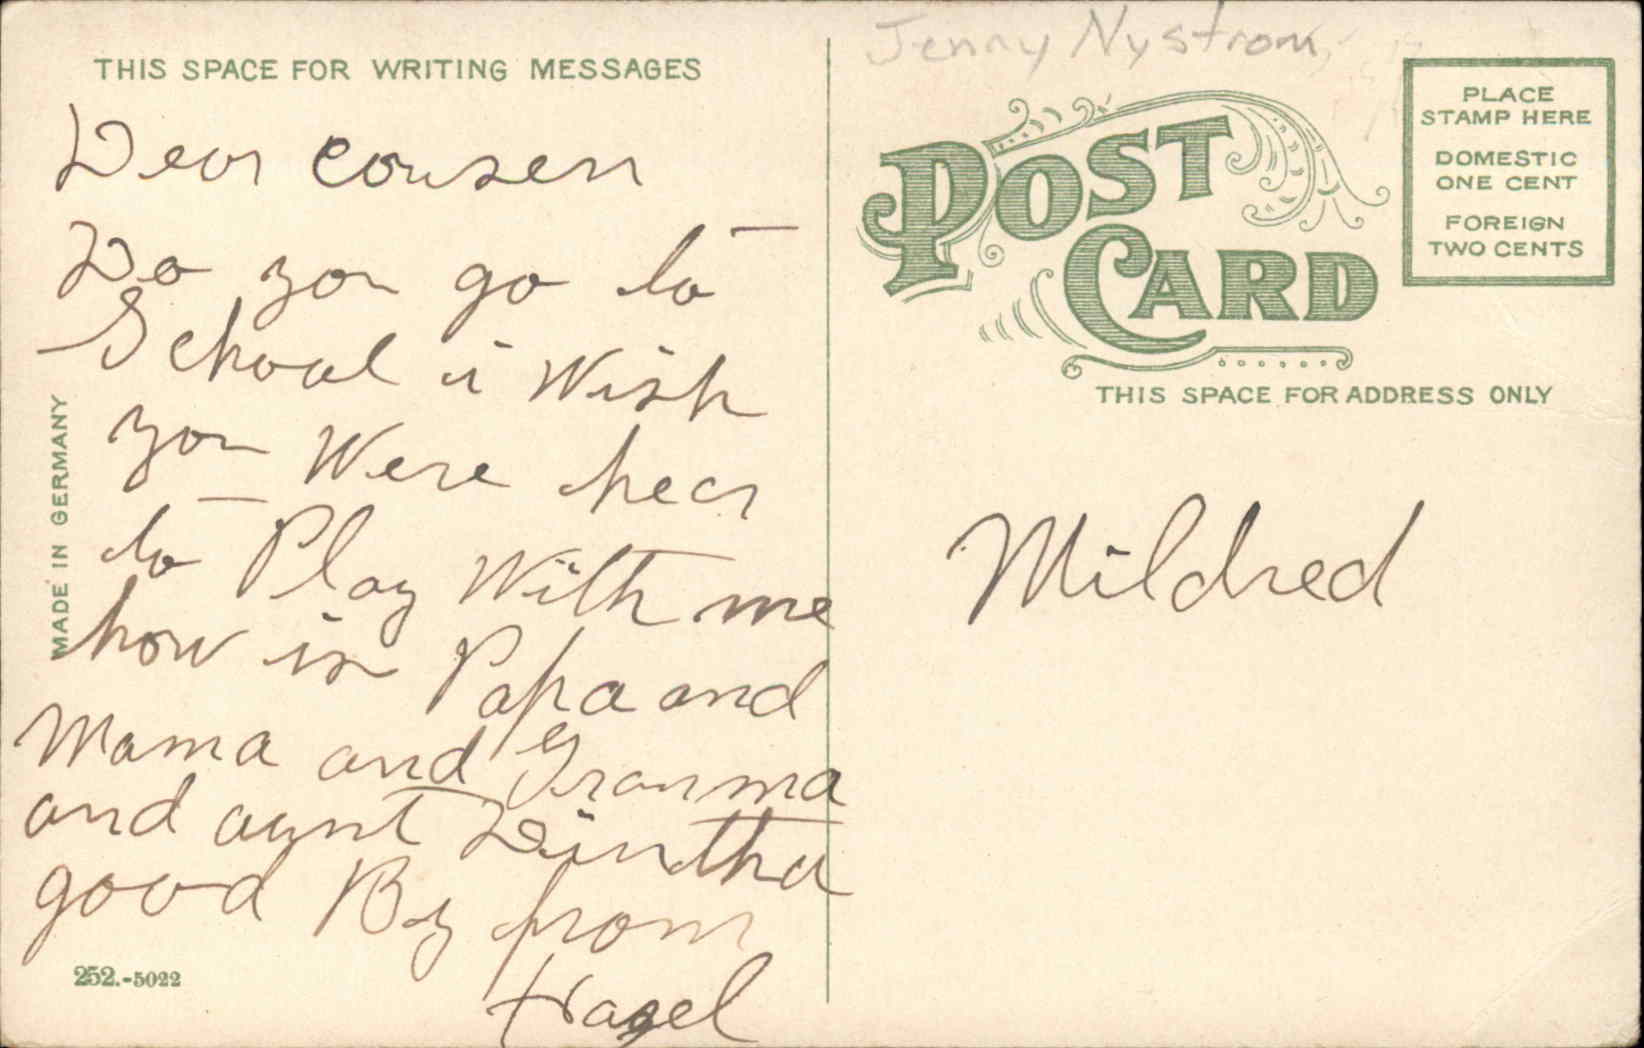 THIS SPACE FOR WRITING MESSAGES
Dear cousen
Do you go to
School i Wish
you Were hear
to Play With me
how is Papa and
Mama and Granma
and aynt
good By from
Hazel
MADE IN GERMANY
252.-5022
Jenny Nystrom
POST
CARD
PLACE
STAMP HERE
DOMESTIC
ONE CENT
FOREIGN
TWO CENTS
THIS SPACE FOR ADDRESS ONLY
Mildred